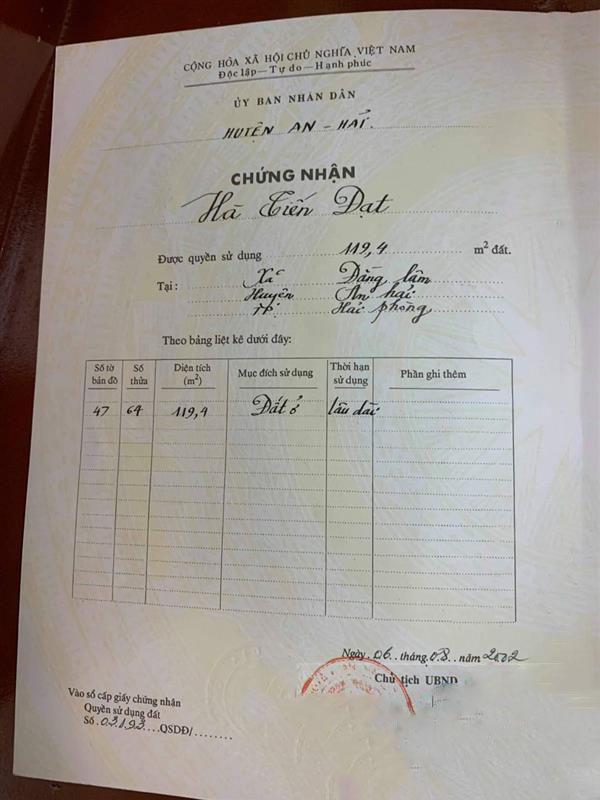 CỘNG HÒA XÃ HỘI CHỦ NGHĨA VIỆT NAM
Độc lập — Tự do — Hạnh phúc
ỦY BAN NHÂN DÂN
HUYỆN AN - HẢI.
CHỨNG NHẬN
Hà Tiến Đạt
Được quyền sử dụng 119,4 m² đất.
Tại: Xã Đằng lâm
Huyện An hải
TP. Hải phòng
Theo bảng liệt kê dưới đây:
Số tờ bản đồ Số thửa Diện tích (m²) Mục đích sử dụng Thời hạn sử dụng Phần ghi thêm
47 64 119,4 Đất ở lâu dài
Ngày 06 tháng 08 năm 2002
Chủ tịch UBND
Vào sổ cấp giấy chứng nhận
Quyền sử dụng đất
Số 03193 QSDĐ/